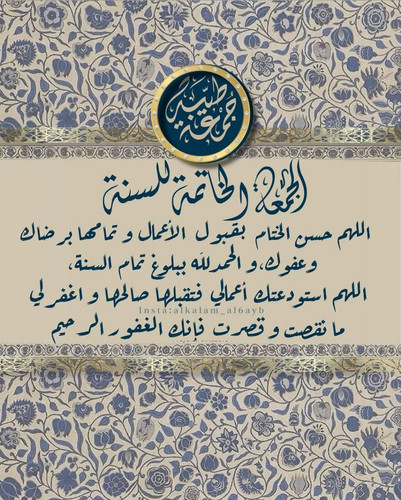 جمعة طيبة
الجمعة الخاتمة للسنة
اللهم حسن الختام بقبول الأعمال و تمامها برضاك
وعفوك، و الحمد لله ببلوغ تمام السنة،
اللهم استودعتك أعمالي فتقبلها صالحها و اغفر لي
Insta:alkalam_al6ayb
ما نقصت و قصرت فإنك الغفور الرحيم